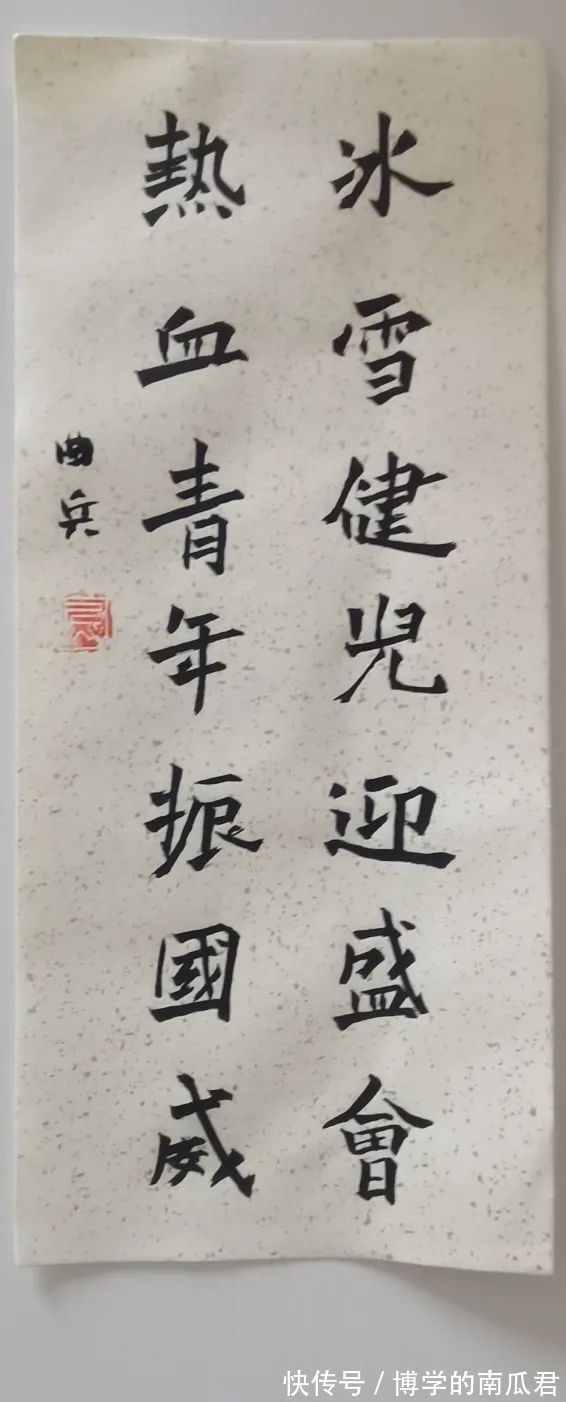 冰雪健児迎盛會
熱血青年振國威
曲兵
快传号/博学的南瓜君